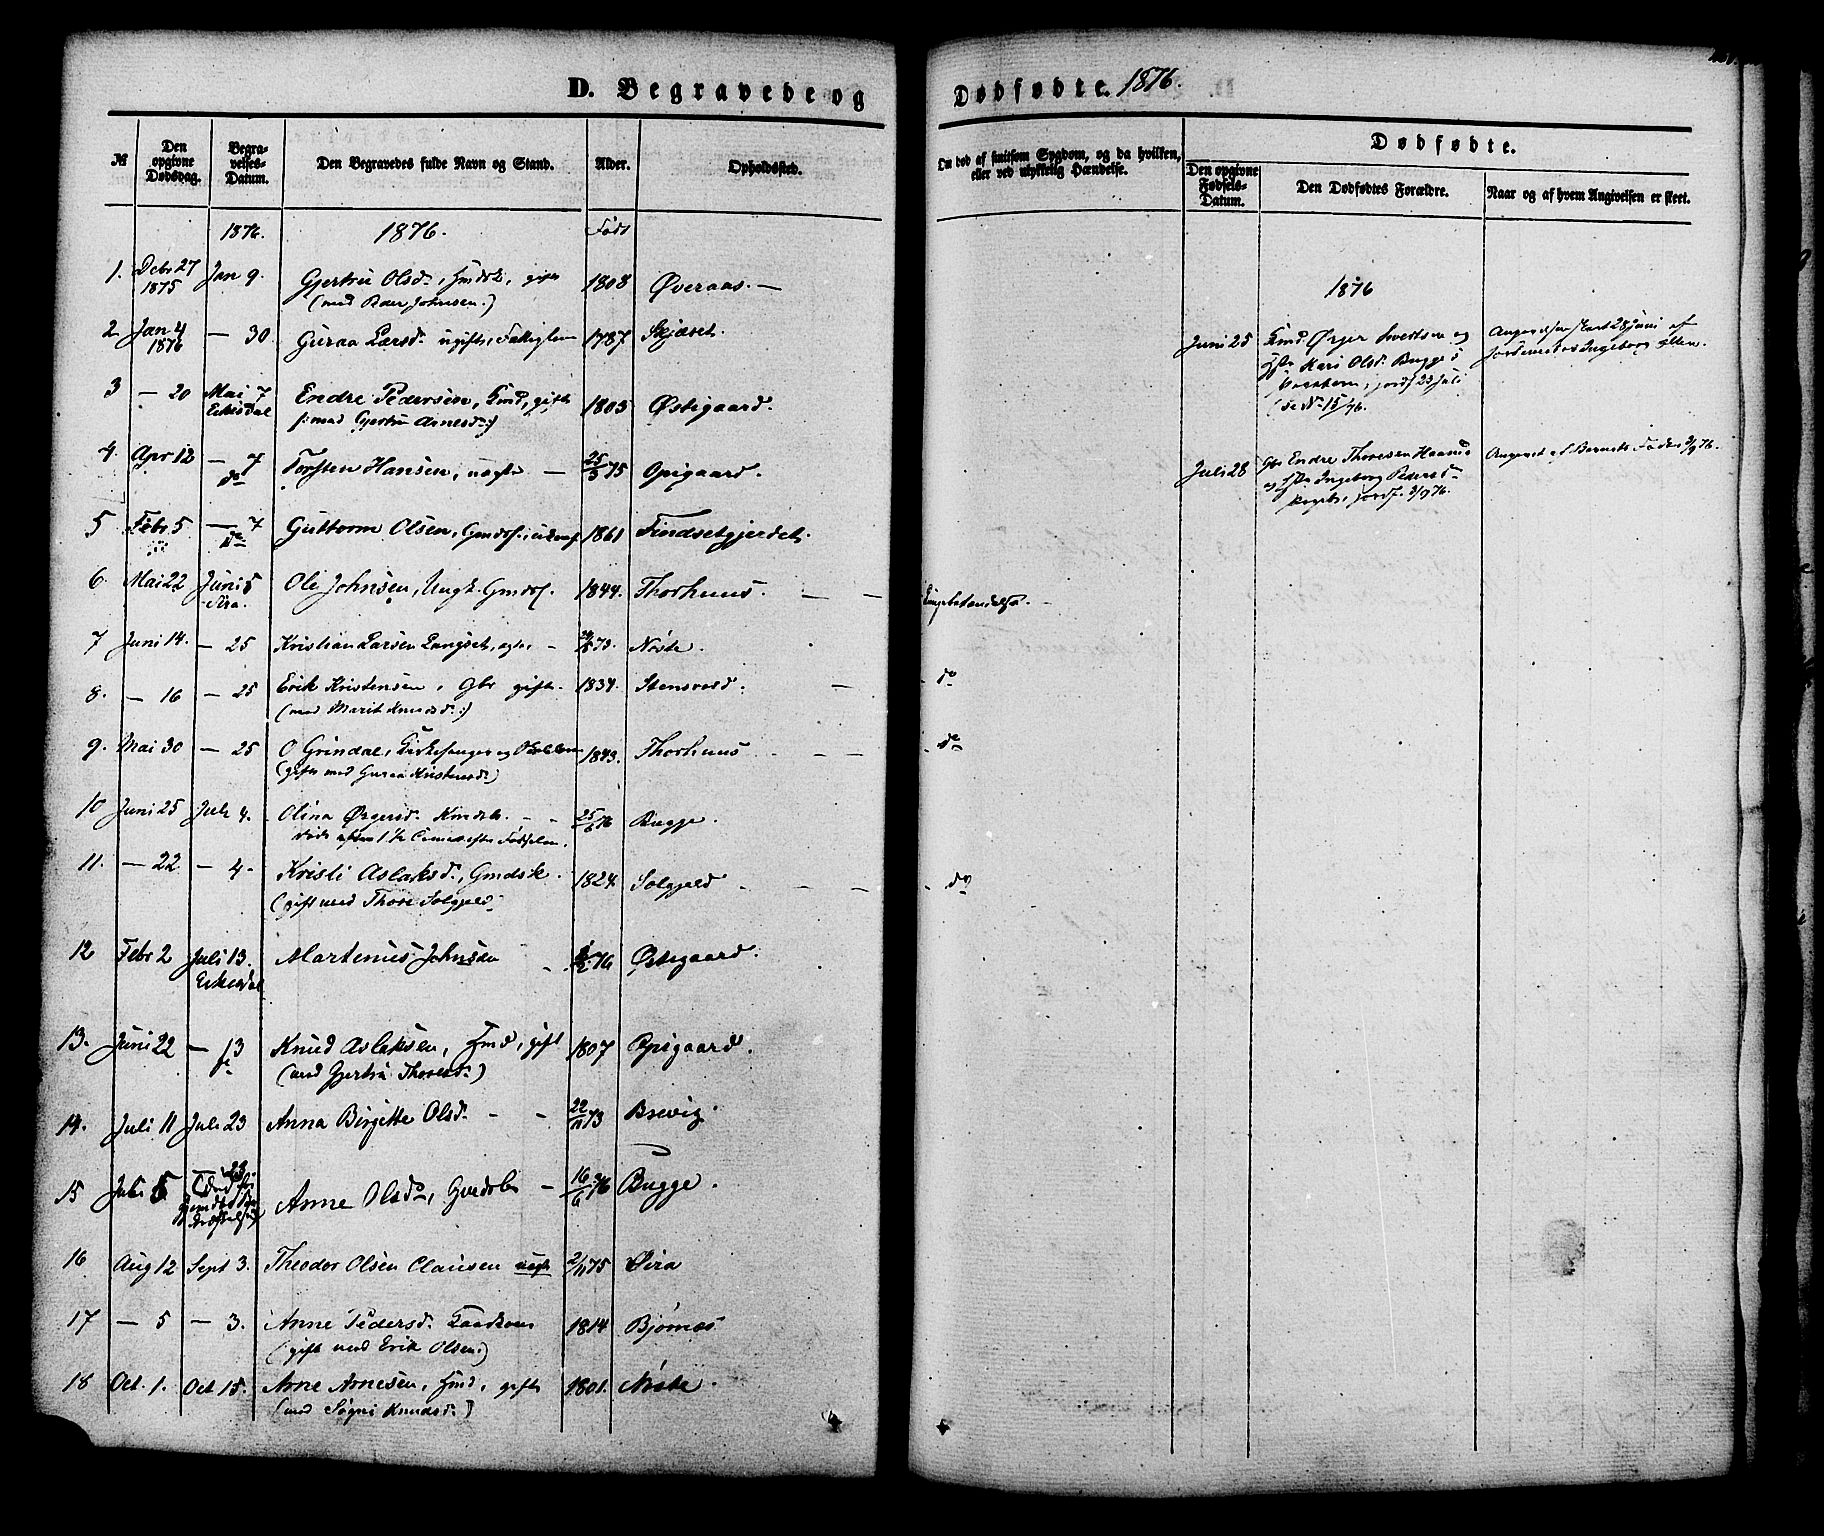 D. Begravede og
Dødfødte. 1876.
№
Den opgivne Dødsdag.
Begravelses-Datum.
Den Begravedes fulde Navn og Stand.
Alder.
Opholdssted.
Om død af smitsom Sygdom, og da hvilken, eller ved ulykkelig Hændelse.
Dødfødte.
Den opgivne Fødsels-Datum.
Den Dødfødtes Forældre.
Naar og af hvem Angivelsen er skeet.
1876. 1876. Født
1. Debr 27 1875 Jan 9. Gjertru Olsd., gift 1808 Øveraas. —
(med Peder Johnsen.)
2 Jan 4 1876 — 30 Guraa Larsd. ugift, 1787 Skjøset.
3 — 20 Mai 7 Eikisdal Endre Pedersen, Kmd, gift 1805 Østigaard.
(: med Gjertru Arnesd:)
4. Apr 12 — 7 do Torsten Hansen, uægte — 25/3 75 Opigaard.
5 Febr 5 — 7 do Guttorm Olsen, Gmdsf. 1861 Findsetgjerdet.
6. Mai 22 Juni 5 Ole Johnsen, Ungk. Gmdsf. 1844. Thorhuus — —
7 Juni 14. — 25 Kristian Larsen Langset, ægte, — 73. Nøste.
8. — 16 — 25 Erik Kristensen, Gbr gift. 1834. Stensvold. — do
(med Marit Knudsd:)
9. Mai 30 — 25 O Grindal, Kirkesanger og 1843. Thorhuus — — do
(gift med Guraa Kristensd.)
10 Juni 25 Juli 4. Olina Ørgersd. — 25/6 76 Bugge.
11. — 22 — 4. Kristi Aslaksd., Gmdsk. 1824. Solgjeld — — — do
(gift med Thore Solgjeld
12 Febr 2 Juli 13. Eikisdal Martenus Johnsen 76 Østigaard.
13. Juni 22 — 13 Knud Aslaksen, Kmd, gift 1807 Opigaard.
(med Gjertru Thoresd.)
14. Juli 11 Juli 23 Anna Birgitte Olsd. — — 22/11 73 Brevig.
15 Juli 5 23 Anne Olsd., — 16/6 76 Bugge.
16 Aug 12 Sept 3. Theodor Olsen Clausen uægt 2/11 75 Øira
17 — 5 — 3. Anne Pedersd. 1814 Bjørnes
(gift med Erik Olsen.)
18 Oct. 1. Oct 15. Arne Arnesen, Kmd, gift 1801. Nøste.
(med Sigri Knudsd.)
1876
Juni 25 Ørger Sivertsen og
Kari Olsd. Bugge
jordf 23 Juli
(se № 15/76.
28 Juni af
Jordemoder Ingeborg
Juli 28 Gbr Endre Thoresen
og Ingeborg Pedersd.
jordf. 3/9 76.
Angivet af Barnets Fader 3/9 76.